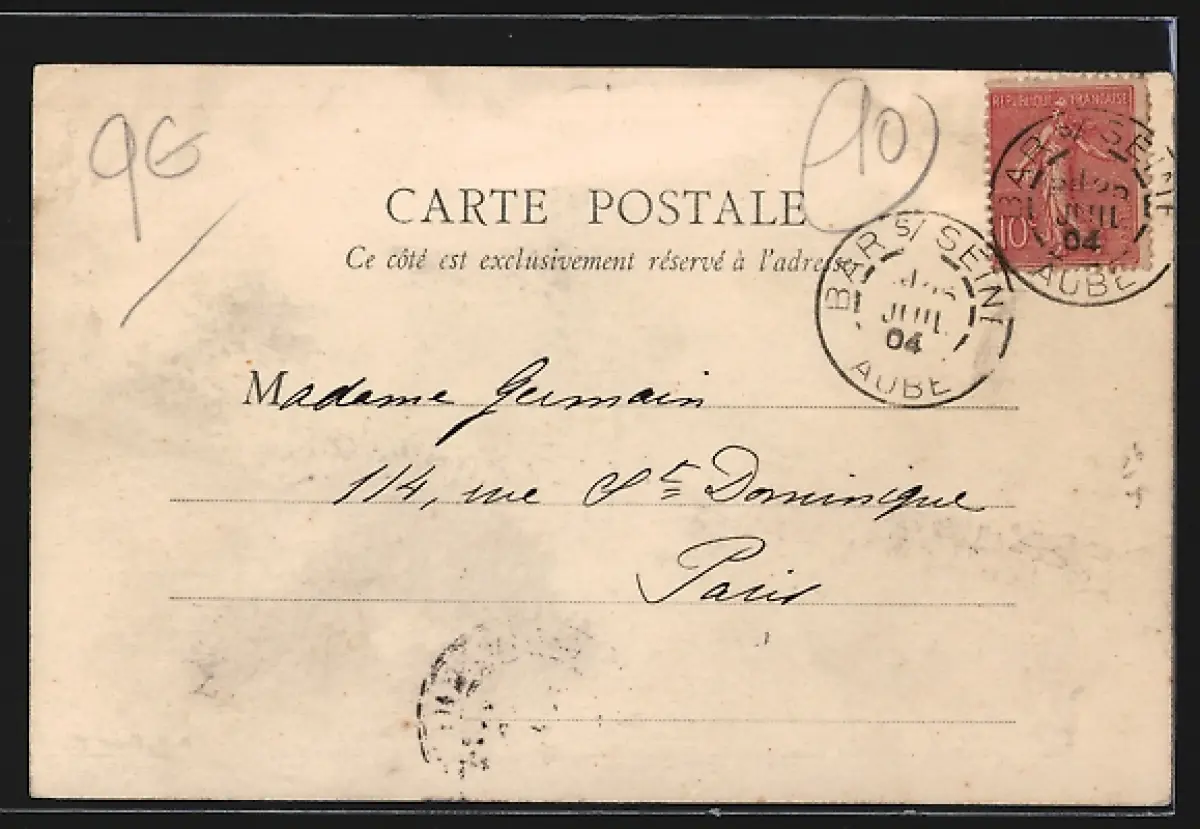 9G
10
REPUBLIQUE FRANÇAISE
10
BAR S/ SEINE
JUIL
04
AUBE
CARTE POSTALE
Ce côté est exclusivement réservé à l'adresse
BAR S/ SEINE
JUIL
04
AUBE
Madame Germain
114, rue St Dominique
Paris